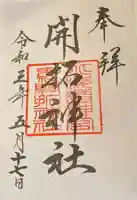 奉拝
開拓神社
令和五年五月十七日